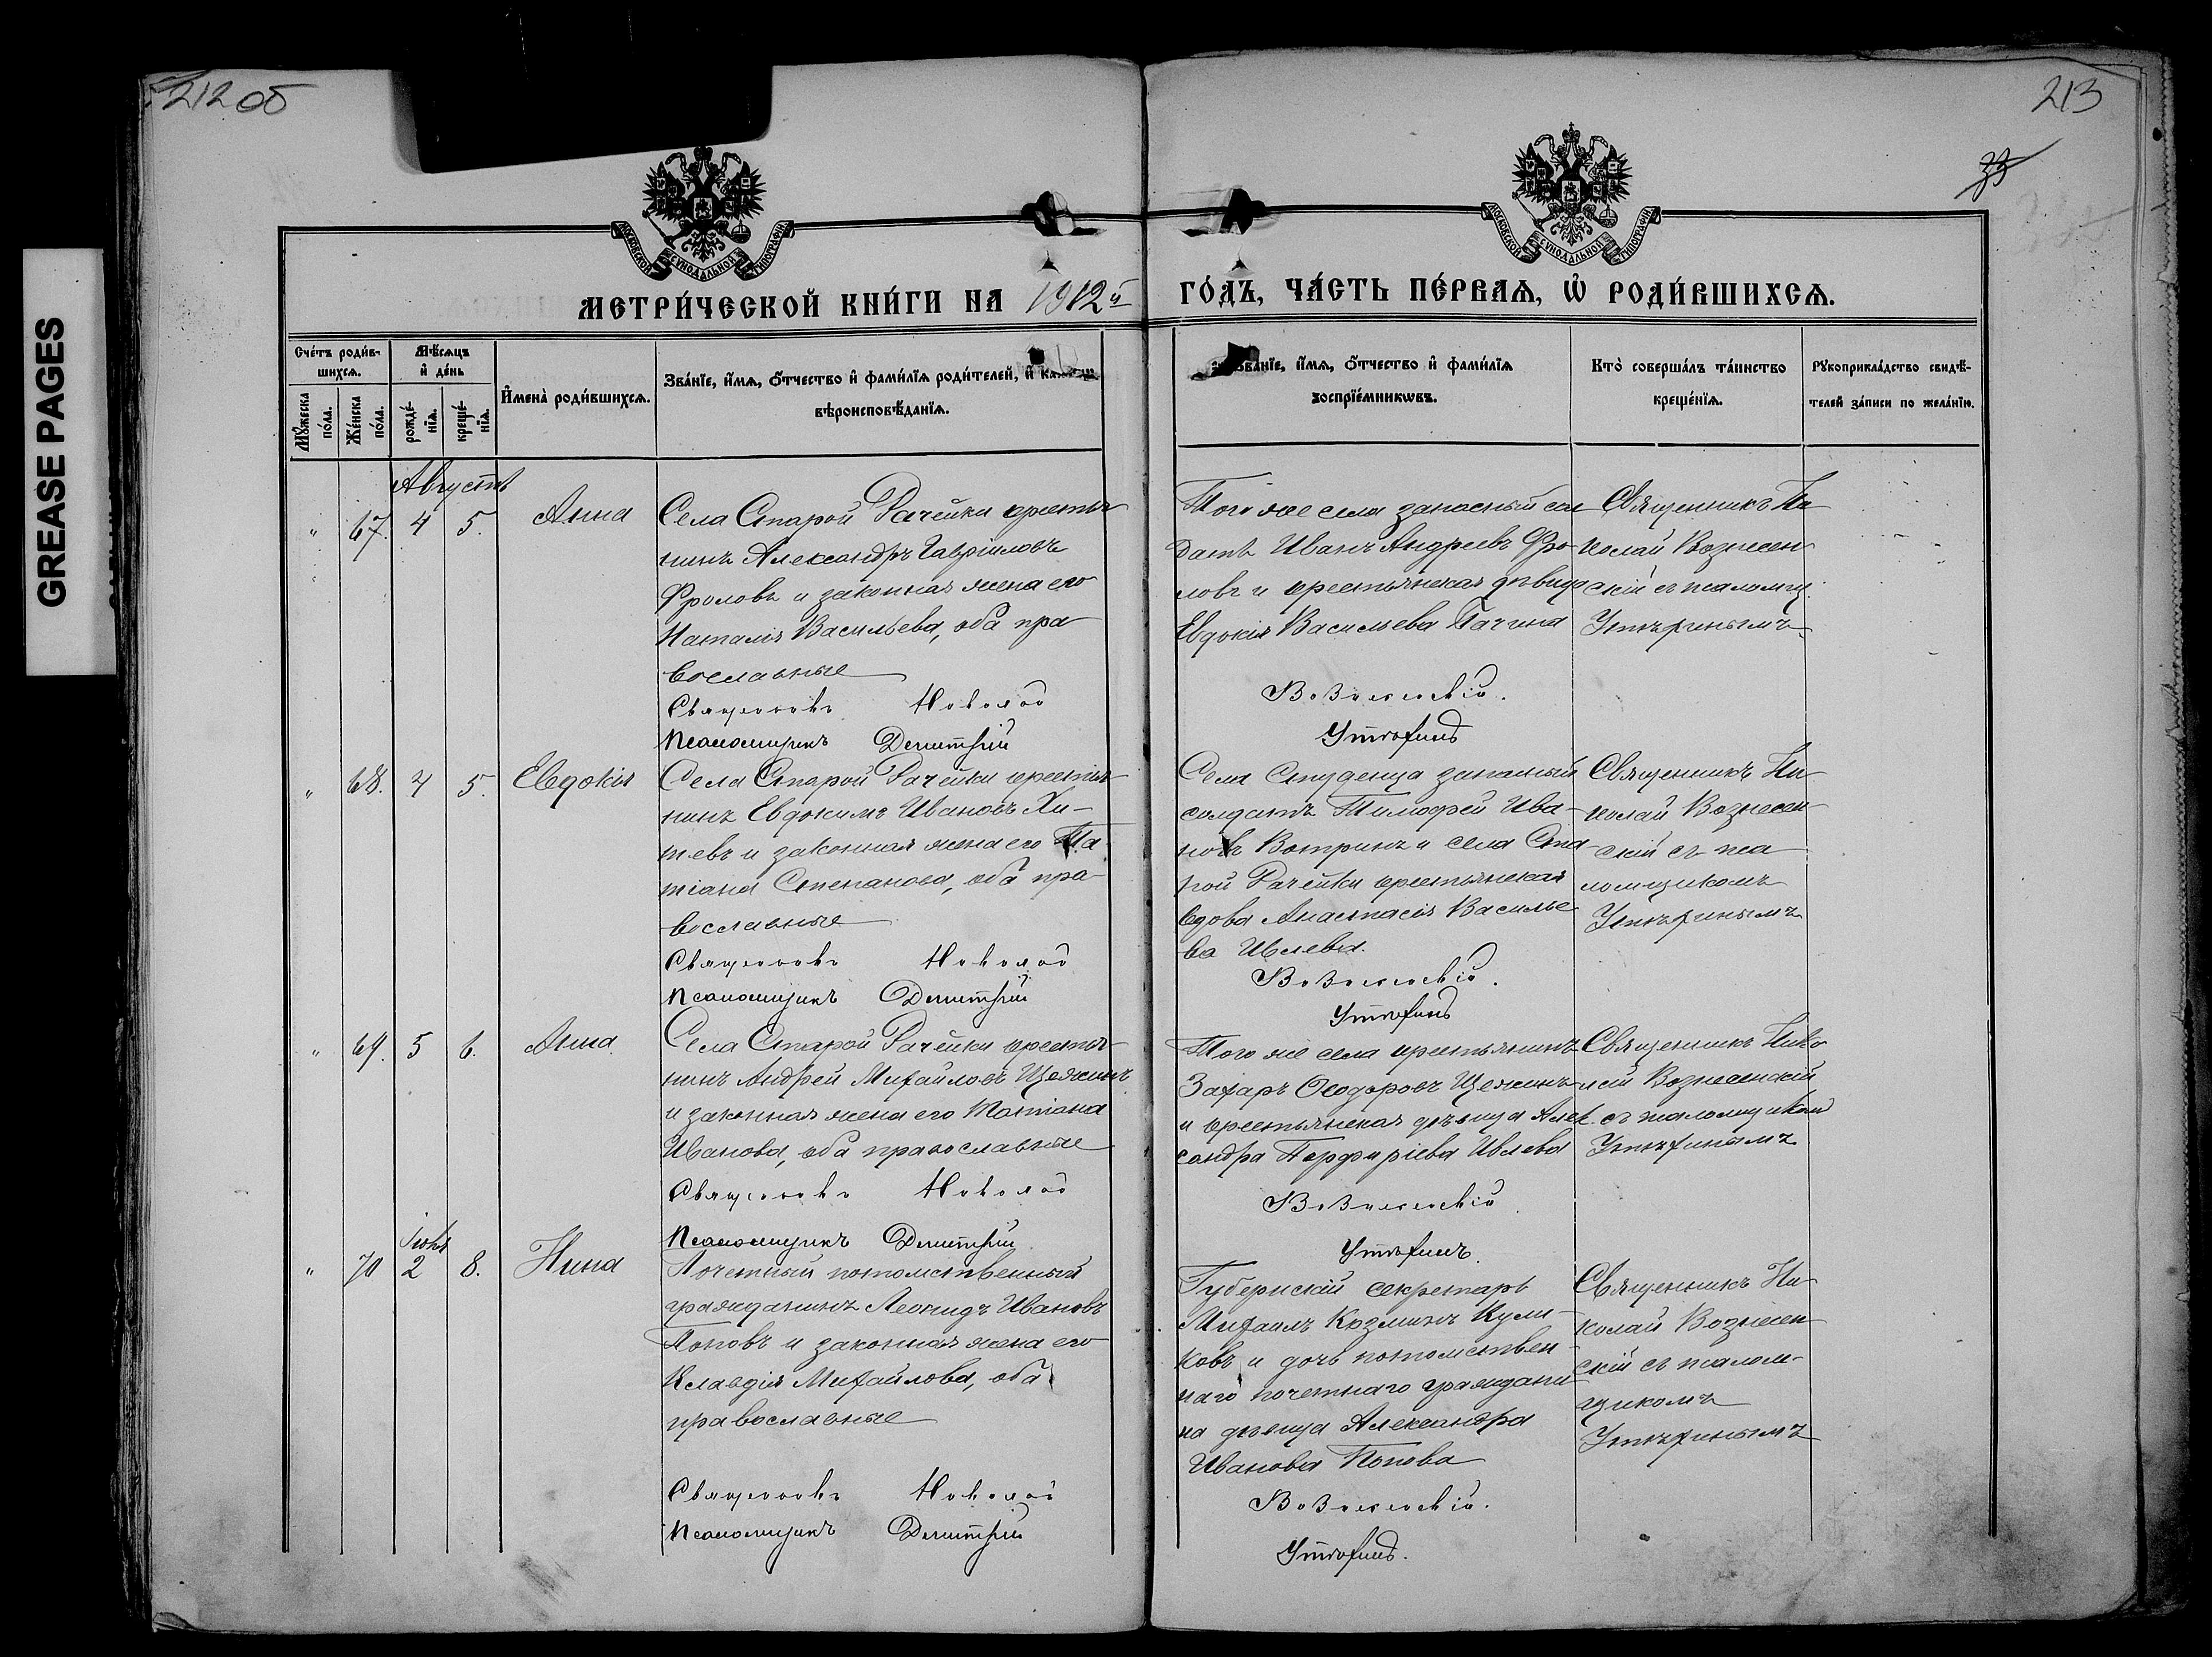 GREASE PAGES
212 об
213
МОСКОВСКОЙ СѴНОДАЛЬНОЙ ТИПОГРАФІИ
МОСКОВСКОЙ СѴНОДАЛЬНОЙ ТИПОГРАФІИ
МЕТРИ́ЧЕСКОЙ КНИ́ГИ НА 1912й
ГО́ДЪ, ЧА́СТЬ ПЕ́РВАѦ, Ѡ҆ РОДИ́ВШИХСѦ.
Сче́тъ роди́в-
шихсѧ.
Мѣ́сѧцъ
и҆ де́нь
Мꙋ́жеска
по́ла.
Же́нска
по́ла.
рожде́-
нїѧ.
креще́-
нїѧ.
И҆мена̀ роди́вшихсѧ.
Зва́нїе, и҆́мѧ, ѻ҆́тчество и҆ фами́лїѧ роди́телей, и҆
вѣроисповѣ́данїѧ.
и҆́мѧ, ѻ҆́тчество и҆ фами́лїѧ
воспрїе́мникѡвъ.
Кто̀ соверша́лъ та́инство
креще́нїѧ.
Рꙋкоприкла́дство свидѣ́-
телей за́писи по жела́нїю.
Августъ
" 67. 4 5. Анна
Села Старой Рачейки крестья-
нинъ Александръ Гавріиловъ
Фроловъ и законная жена его
Наталія Васильева, оба пра-
вославные
Священникъ Николай
Псаломщикъ Димитрій
Того же села запасный сол-
датъ Иванъ Андреевъ Фро-
ловъ и крестьянская дѣвица
Евдокія Васильева
Вознесенскій.
Священникъ Ни-
колай Вознесен-
скій съ псаломщ.
" 68. 4 5. Евдокія
Села Старой Рачейки крестья-
нинъ Евдокимъ Ивановъ Хи-
тевъ и законная жена его Та-
тіана Степанова, оба пра-
вославные
Священникъ Николай
Псаломщикъ Димитрій
Села Студенца запасный
солдатъ Тимофей Ива-
новъ Вотринъ и села Ста-
рой Рачейки крестьянская
вдова Анастасія Василье-
ва Ивлева.
Вознесенскій.
Священникъ Ни-
колай Вознесен-
скій съ пса-
ломщикомъ
" 69. 5 6. Анна
Села Старой Рачейки крестья-
нинъ Андрей Михайловъ
и законная жена его Татіана
Иванова, оба православные
Священникъ Николай
Псаломщикъ Димитрій
Того же села крестьянинъ
Захаръ Ѳеодоровъ
и крестьянская дѣвица Алек-
сандра Порфиріева Ивлева
Вознесенскій
Священникъ Нико-
лай Вознесенскій
съ псаломщикомъ
" 70 Іюнь 2 8. Нина
Почетный потомственный
гражданинъ Леонидъ Ивановъ
Поповъ и законная жена его
Клавдія Михайлова, оба
православные
Священникъ Николай
Псаломщикъ Димитрій
Губернскій секретарь
Михаилъ Козминъ Кули-
ковъ и дочь потомствен-
наго почетнаго граждани-
на дѣвица Александра
Иванова Попова
Вознесенскій.
Священникъ Ни-
колай Вознесен-
скій съ псалом-
щикомъ